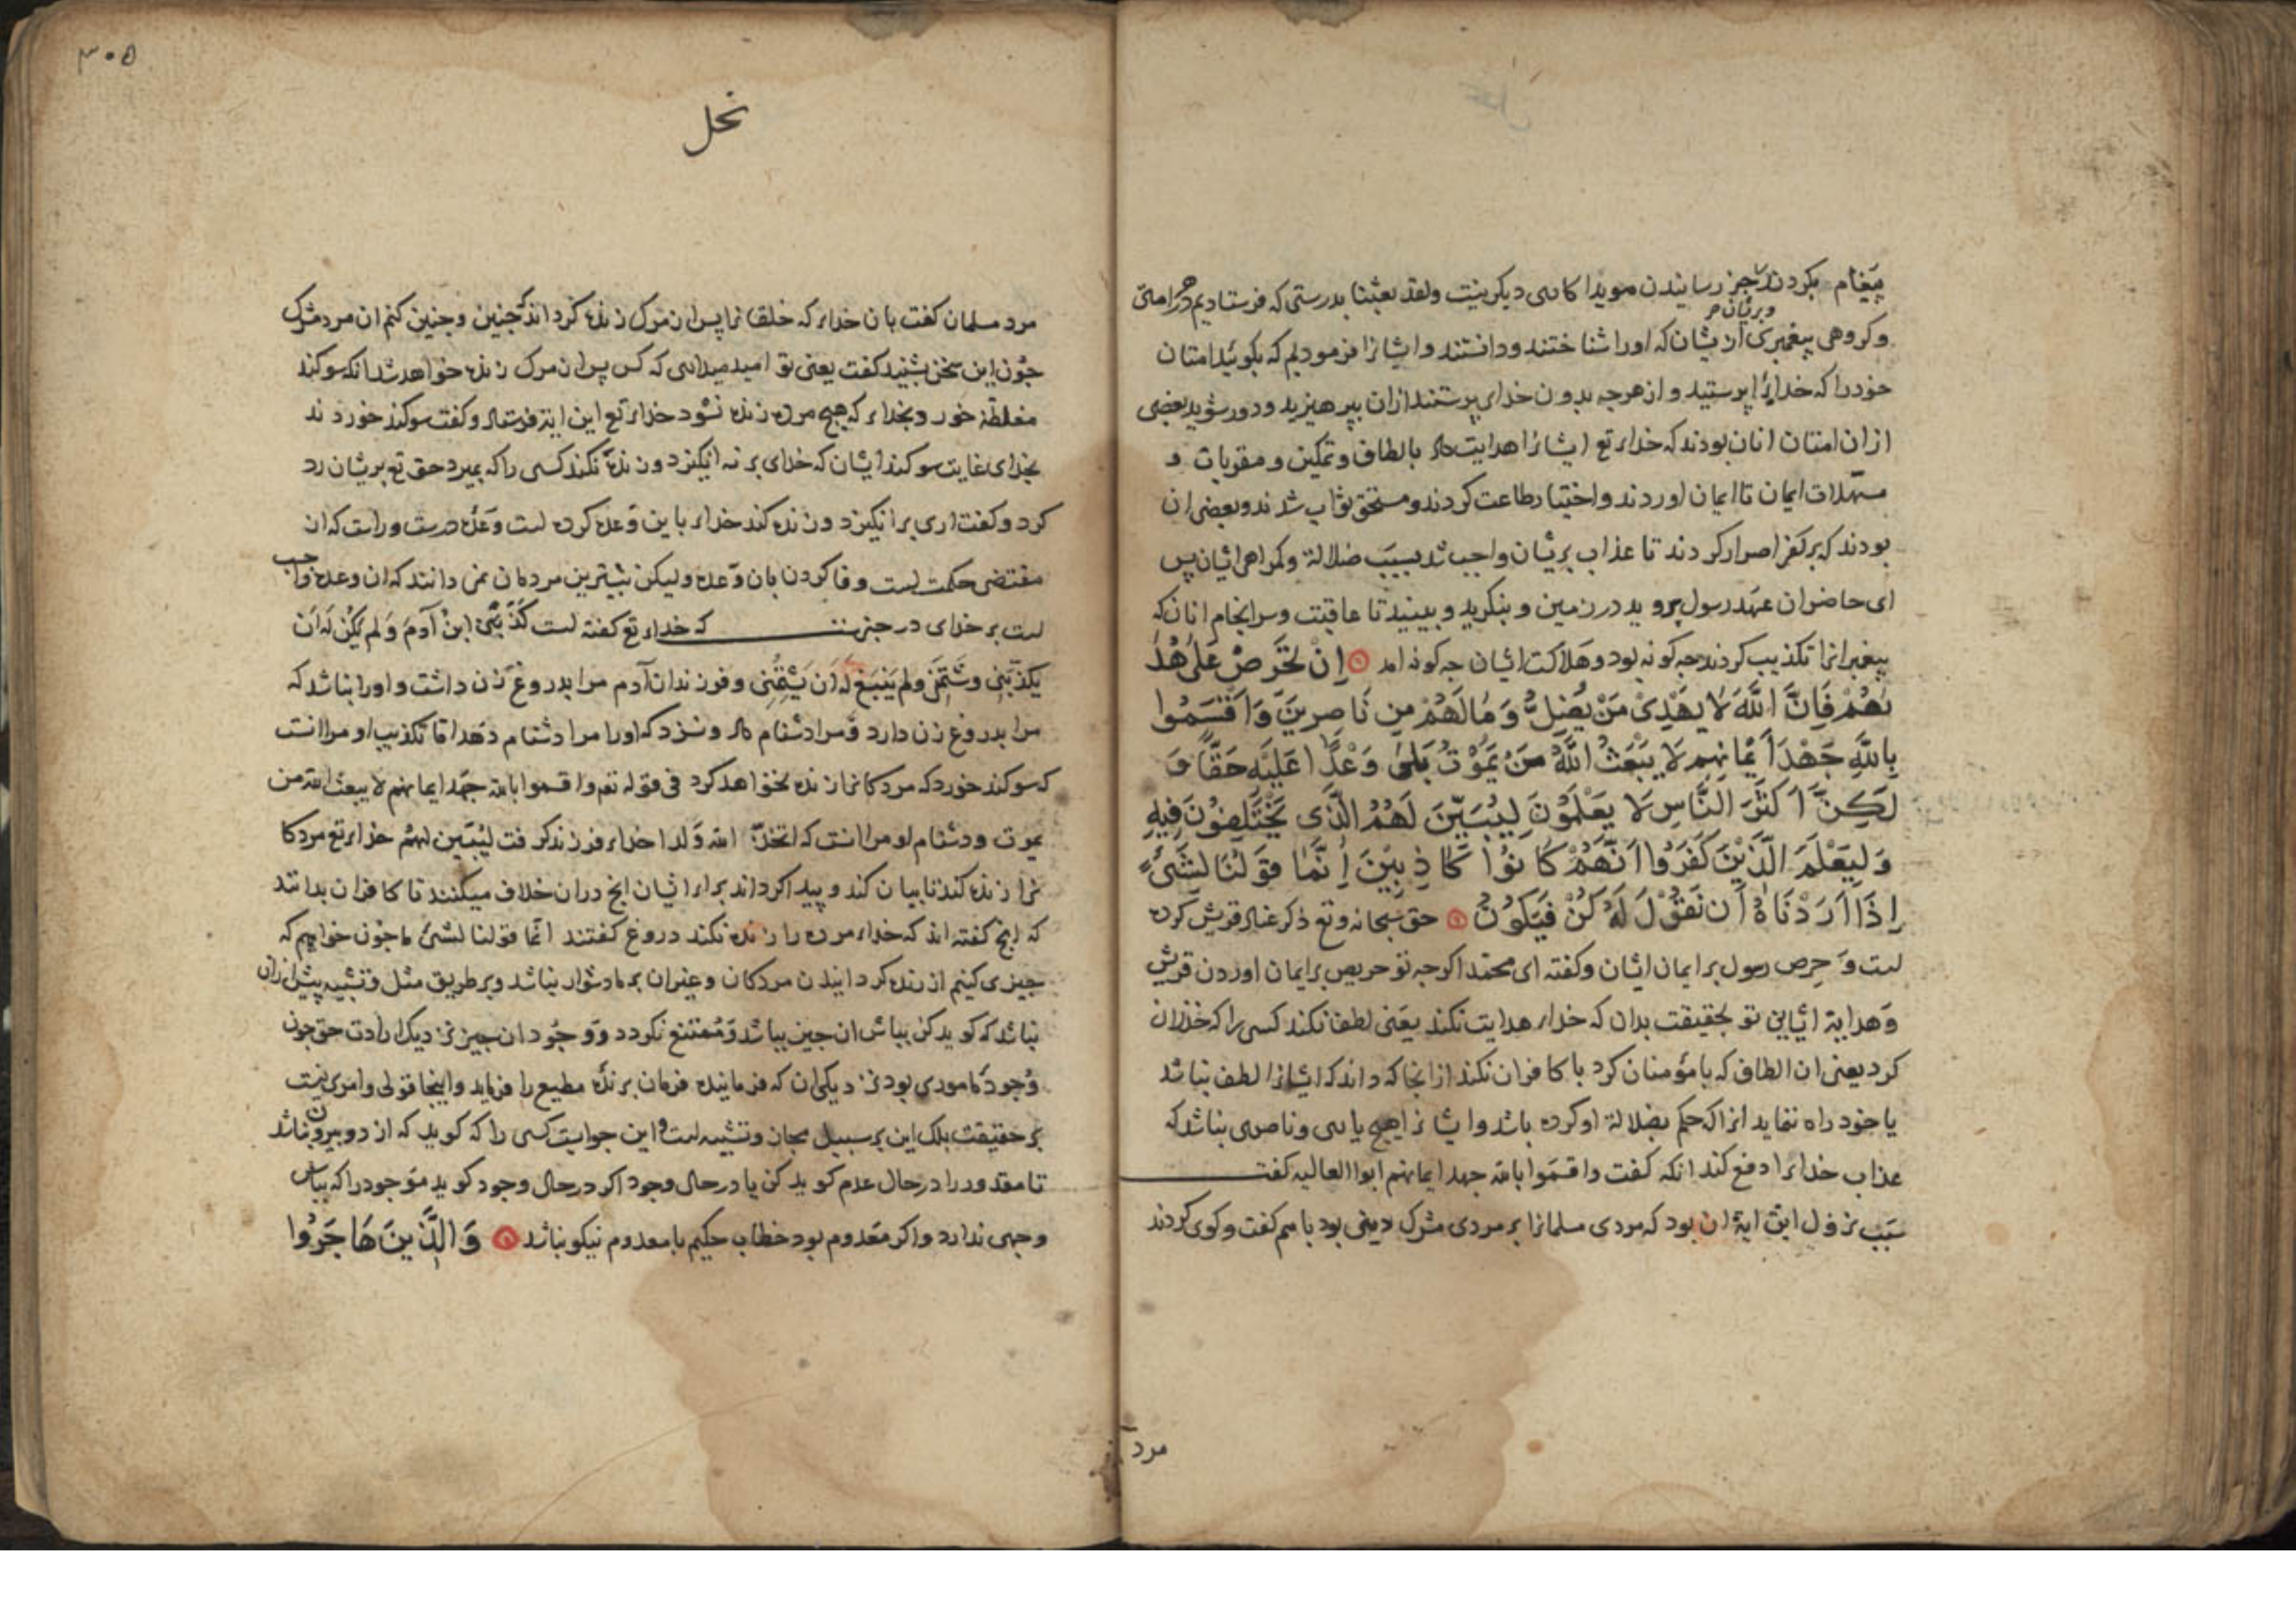 پیغام بکردند بجز رسانیدن هویدا کاری دیکر نیست ولقد بعثنا بدرستی که فرستادیم در هر امتی
وبریشان
وکروهی پیغمبری از یشان که اورا شناختند ودانستند وایشانرا فرمودیم که بکویید امتان
خودرا که خدایرا پرستید و از هرچه بدون خدای پرستند ازان بپرهیزید ودور شوید بعضی
ازان امتان انان بودند که خدای تع ایشانرا هدایت داد بالطاف وتمکین و مقربات و
مسهلات ایمان تا ایمان اوردند واختیار طاعت کردند ومستحق ثواب شدند وبعضی ان
بودند که بر کفر اصرار کردند تا عذاب بریشان واجب شد بسبب ضلالة وکمراهی ایشان پس
ای حاضران عهد رسول بروید در زمین و بنکرید و ببینید تا عاقبت وسرانجام انان که
پیغمبرانرا تکذیب کردند جه کونه بود وهلاکت ایشان جه کونه امد اِنْ تَحْرِصْ عَلٰی هُدٰ
ٮهُمْ فَاِنَّ اللّٰهَ لَا یَهْدِیْ مَنْ یُضِلُّ وَ مَا لَهُمْ مِنِ نَاصِرِینَ وَ اَقْسَمُوا
بِاللّٰهِ جَهْدَ اَیْمَانِهِم لَا یَبْعَثُ اللّٰهُ مَنْ یَمُوْتُ بَلٰی وَعْدًا عَلَیْهِ حَقًّا وَ
لٰکِنَّ اَکْثَرَ النَّاسِ لَا یَعْلَمُوْنَ لِیُبَیِّنَ لَهُمُ الَّذِی یَخْتَلِفُوْنَ فِیهِ
وَ لِیَعْلَمَ الَّذِیْنَ کَفَرُوا اَنَّهُمْ کَانُوْا کَاذِبِیْنَ اِنَّمَا قَوْلُنَا لِشَیْءٍ
اِذَا اَرَدْنَاهُ اَن نَقُوْلَ لَهُ کُنْ فَیَکُوْنُ حق سبحانه وتع ذکر عناد قریش کرده
است وَ حرص رسول بر ایمان ایشان وکفته ای محمد اکر جه تو حریص بر ایمان اوردن قریش
وَ هدایة ایشانی تو بحقیقت بدان که خدای هدایت نکند یعنی لطف نکند کسی را که خذلان
کرد یعنی ان الطاف که با مؤمنان کرد با کافران نکند از انجا که داند که ایشانرا لطف نباشد
یا خود راه ننماید انرا که حکم بضلالة او کرده باشد وایشانرا هیچ یاری وناصری نباشد که
عذاب خدایرا دفع کند انکه کفت واقسموا بالله جهد ایمانهم ابوا العالیه کفت
سَبَب نزول این ایة ان بود که مردی مسلمانرا بر مردی مشرک دینی بود با هم کفت وکوی کردند
مرد
۳۰۵
نحل
مرد مسلمان کفت بان خدای که خلقانرا پس از مرک زنده کرداند که جنین وجنین کنم ان مرد مشرک
جون این سخن بشنید کفت یعنی تو امید میداری که کس پس از مرک زنده خواهد شد انکه سوکند
مغلظه خورد وبخدای که هیچ مرده زنده نشود خدای تع این ایة فرستاد وکفت سوکند خوردند
بخدای غایت سوکند ایشان که خدای بر نه انکیزد وزنده نکند کسی را که بمیرد حق تع بریشان رد
کرد وکفت اری بر انکیزد وزنده کند خدای باین وعده کرده است وَعدهٔ درست وراست که ان
مقتضی حکمت است و وفا کردن بان وَعده ولیکن بیشترین مردمان نمی دانند که ان وعده واجب
است بر خدای در خبرست که خدای تع کفته است کَذَّبَنِی ابنُ آدَمَ وَ لَم یَکُنْ لَه اَن
یُکَذِّبَنِی وشَتَمَنِی ولم یَنبَغِ لَهُ اَن یَشْتِمَنِی وفرزندان آدم مرا بدروغ زن داشت واورا نباشد که
مرا بدروغ زن دارد وَ مرا دشنام داد ونسزد که اورا مرا دشنام دهد اما تکذیب او مرا انست
که سوکند خورد که مردکانرا زنده نخواهد کرد فی قوله تع واقسموا بالله جهد ایمانهم لا یبعث الله من
یموت ودشنام او مرا انست که اتخذ الله وَلدا خدای فرزند کرفت لیُبَیِّن لهم خدای تع مردکا
نرا زنده کند تا بیان کند و پیدا کرداند برای ایشان انچ دران خلاف میکنند تا کافران بدانند
که انچ کفته اند که خدای مرده را زنده نکند دروغ کفتند انّما قولنا لشیٔ ما جون خواهیم که
جیزی کنیم از زنده کردانیدن مردکان وغیران بر ما دشوار نباشد وبر طریق مثل وتشبیه پیش ازان
نباشد که کوید کن بباش ان جیز بباشد وَ مُمتنع نکردد وَ وجُود ان جیز نزدیک ارادت حق جون
وُجود مأموری بود نزدیک ان که فرماینده فرمان برنده مطیع را فرماید واینجا قولی وامری نیست
بر حقیقت بلک این بر سبیل مجاز وتشبیه است و این جوابست کسی را که کوید که از دو بیرون نباشد
تا مقدور را در حال عدم کوید کن یا در حال وجود اکر در حال وجود کوید موَجود را که بباش
وجهی ندارد واکر معَدوم بود خطاب حکیم با معدوم نیکو نباشد وَ الَّذِینَ هَاجَرُوْا